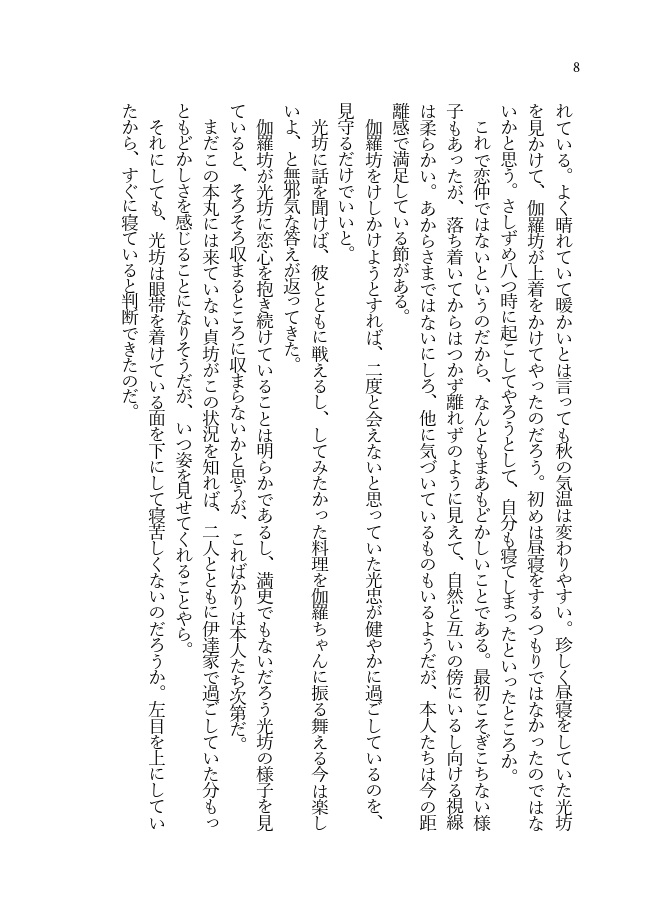 8
れている。よく晴れていて暖かいとは言っても秋の気温は変わりやすい。珍しく昼寝をしていた光坊
を見かけて、伽羅坊が上着をかけてやったのだろう。初めは昼寝をするつもりではなかったのではな
いかと思う。さしずめ八つ時に起こしてやろうとして、自分も寝てしまったといったところか。
これで恋仲ではないというのだから、なんともまあもどかしいことである。最初こそぎこちない様
子もあったが、落ち着いてからはつかず離れずのように見えて、自然と互いの傍にいるし向ける視線
は柔らかい。あからさまではないにしろ、他に気づいているものもいるようだが、本人たちは今の距
離感で満足している節がある。
伽羅坊をけしかけようとすれば、二度と会えないと思っていた光忠が健やかに過ごしているのを、
見守るだけでいいと。
光坊に話を聞けば、彼とともに戦えるし、してみたかった料理を伽羅ちゃんに振る舞える今は楽し
いよ、と無邪気な答えが返ってきた。
伽羅坊が光坊に恋心を抱き続けていることは明らかであるし、満更でもないだろう光坊の様子を見
ていると、そろそろ収まるところに収まらないかと思うが、こればかりは本人たち次第だ。
まだこの本丸には来ていない貞坊がこの状況を知れば、二人とともに伊達家で過ごしていた分もっ
ともどかしさを感じることになりそうだが、いつ姿を見せてくれることやら。
それにしても、光坊は眼帯を着けている面を下にして寝苦しくないのだろうか。左目を上にしてい
たから、すぐに寝ていると判断できたのだ。